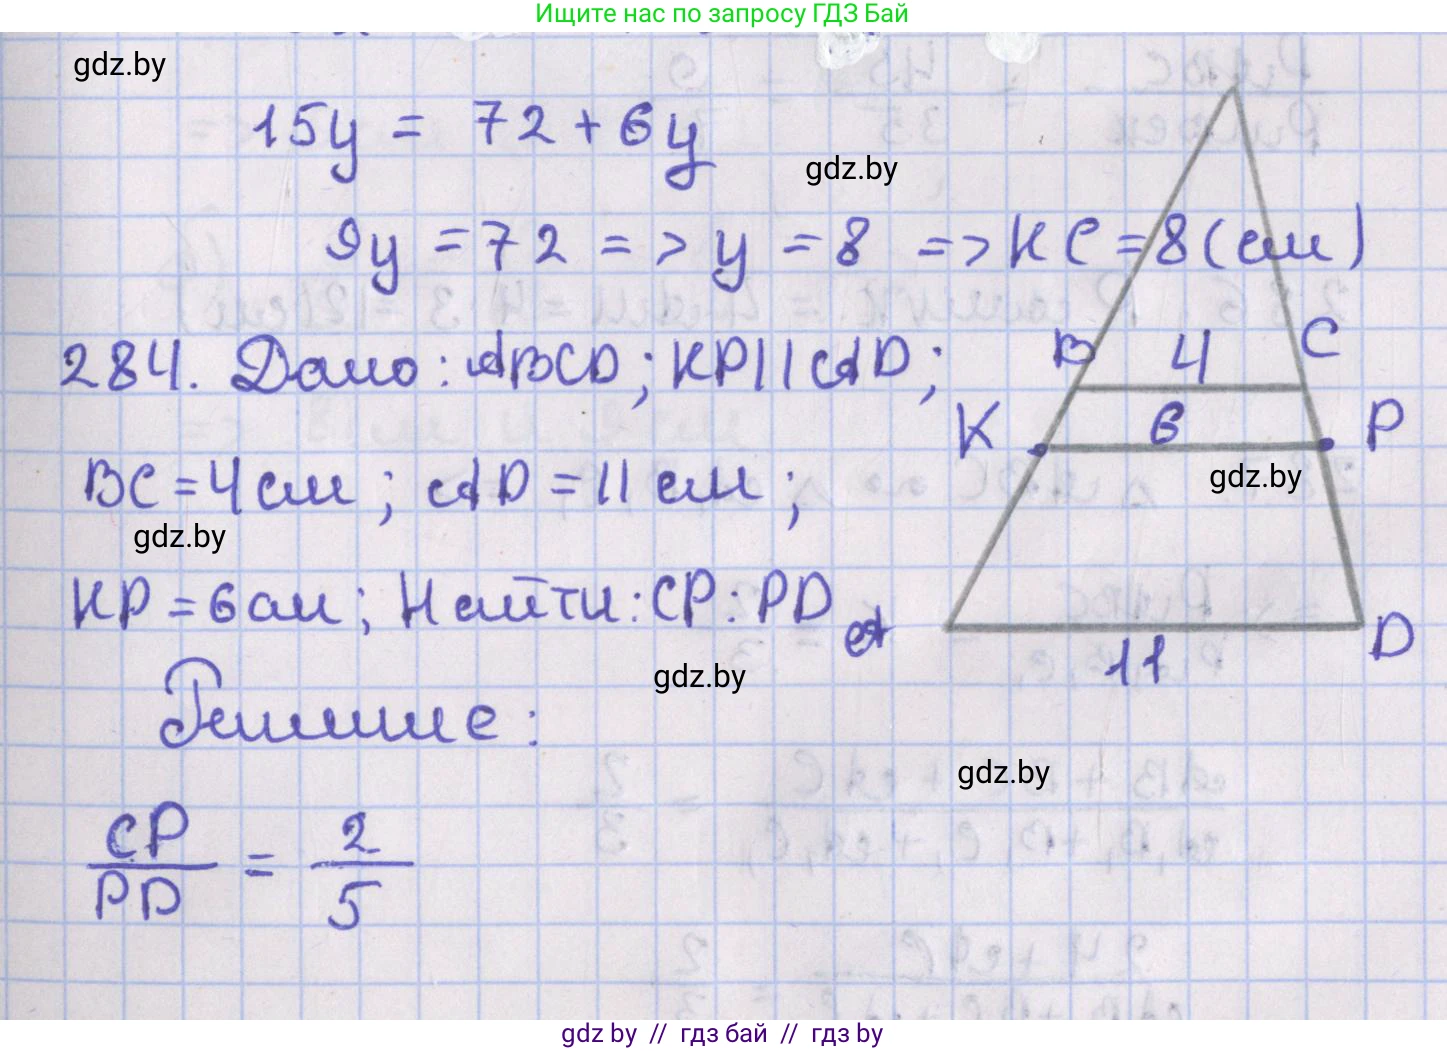 Ищите нас по запросу ГДЗ Бай
gdz.by
15y = 72 + 6y
gdz.by
9y = 72 => y = 8 => KC = 8 (см)
284. Дано: ABCD; KP || AD;
B 4 C
K 6 P
BC = 4 см; AD = 11 см;
gdz.by
gdz.by
KP = 6 см; Найти: CP : PD
A D
11
gdz.by
Решение:
gdz.by
CP/PD = 2/5
gdz by // гдз бай // гдз by